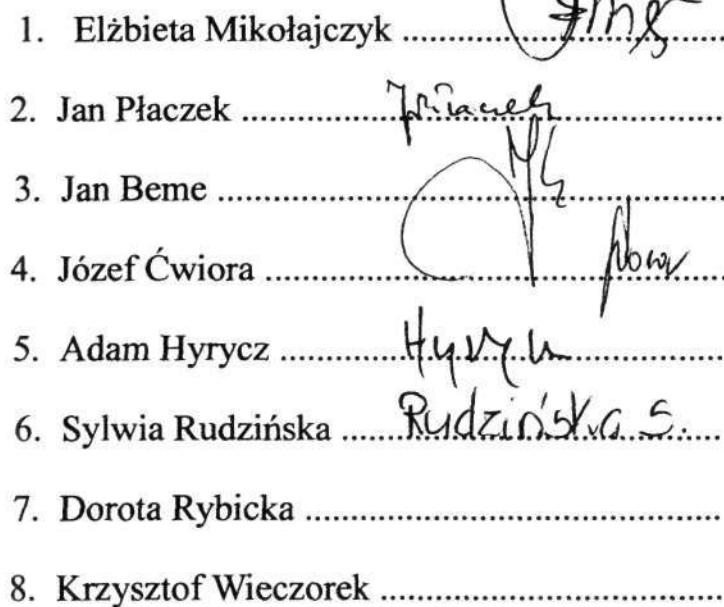 1. Elżbieta Mikołajczyk ..............................
2. Jan Płaczek ..............................
3. Jan Beme ..............................
4. Józef Ćwiora ..............................
5. Adam Hyrycz ..............................
6. Sylwia Rudzińska .......Rudzińska S.......
7. Dorota Rybicka ..............................
8. Krzysztof Wieczorek ..............................